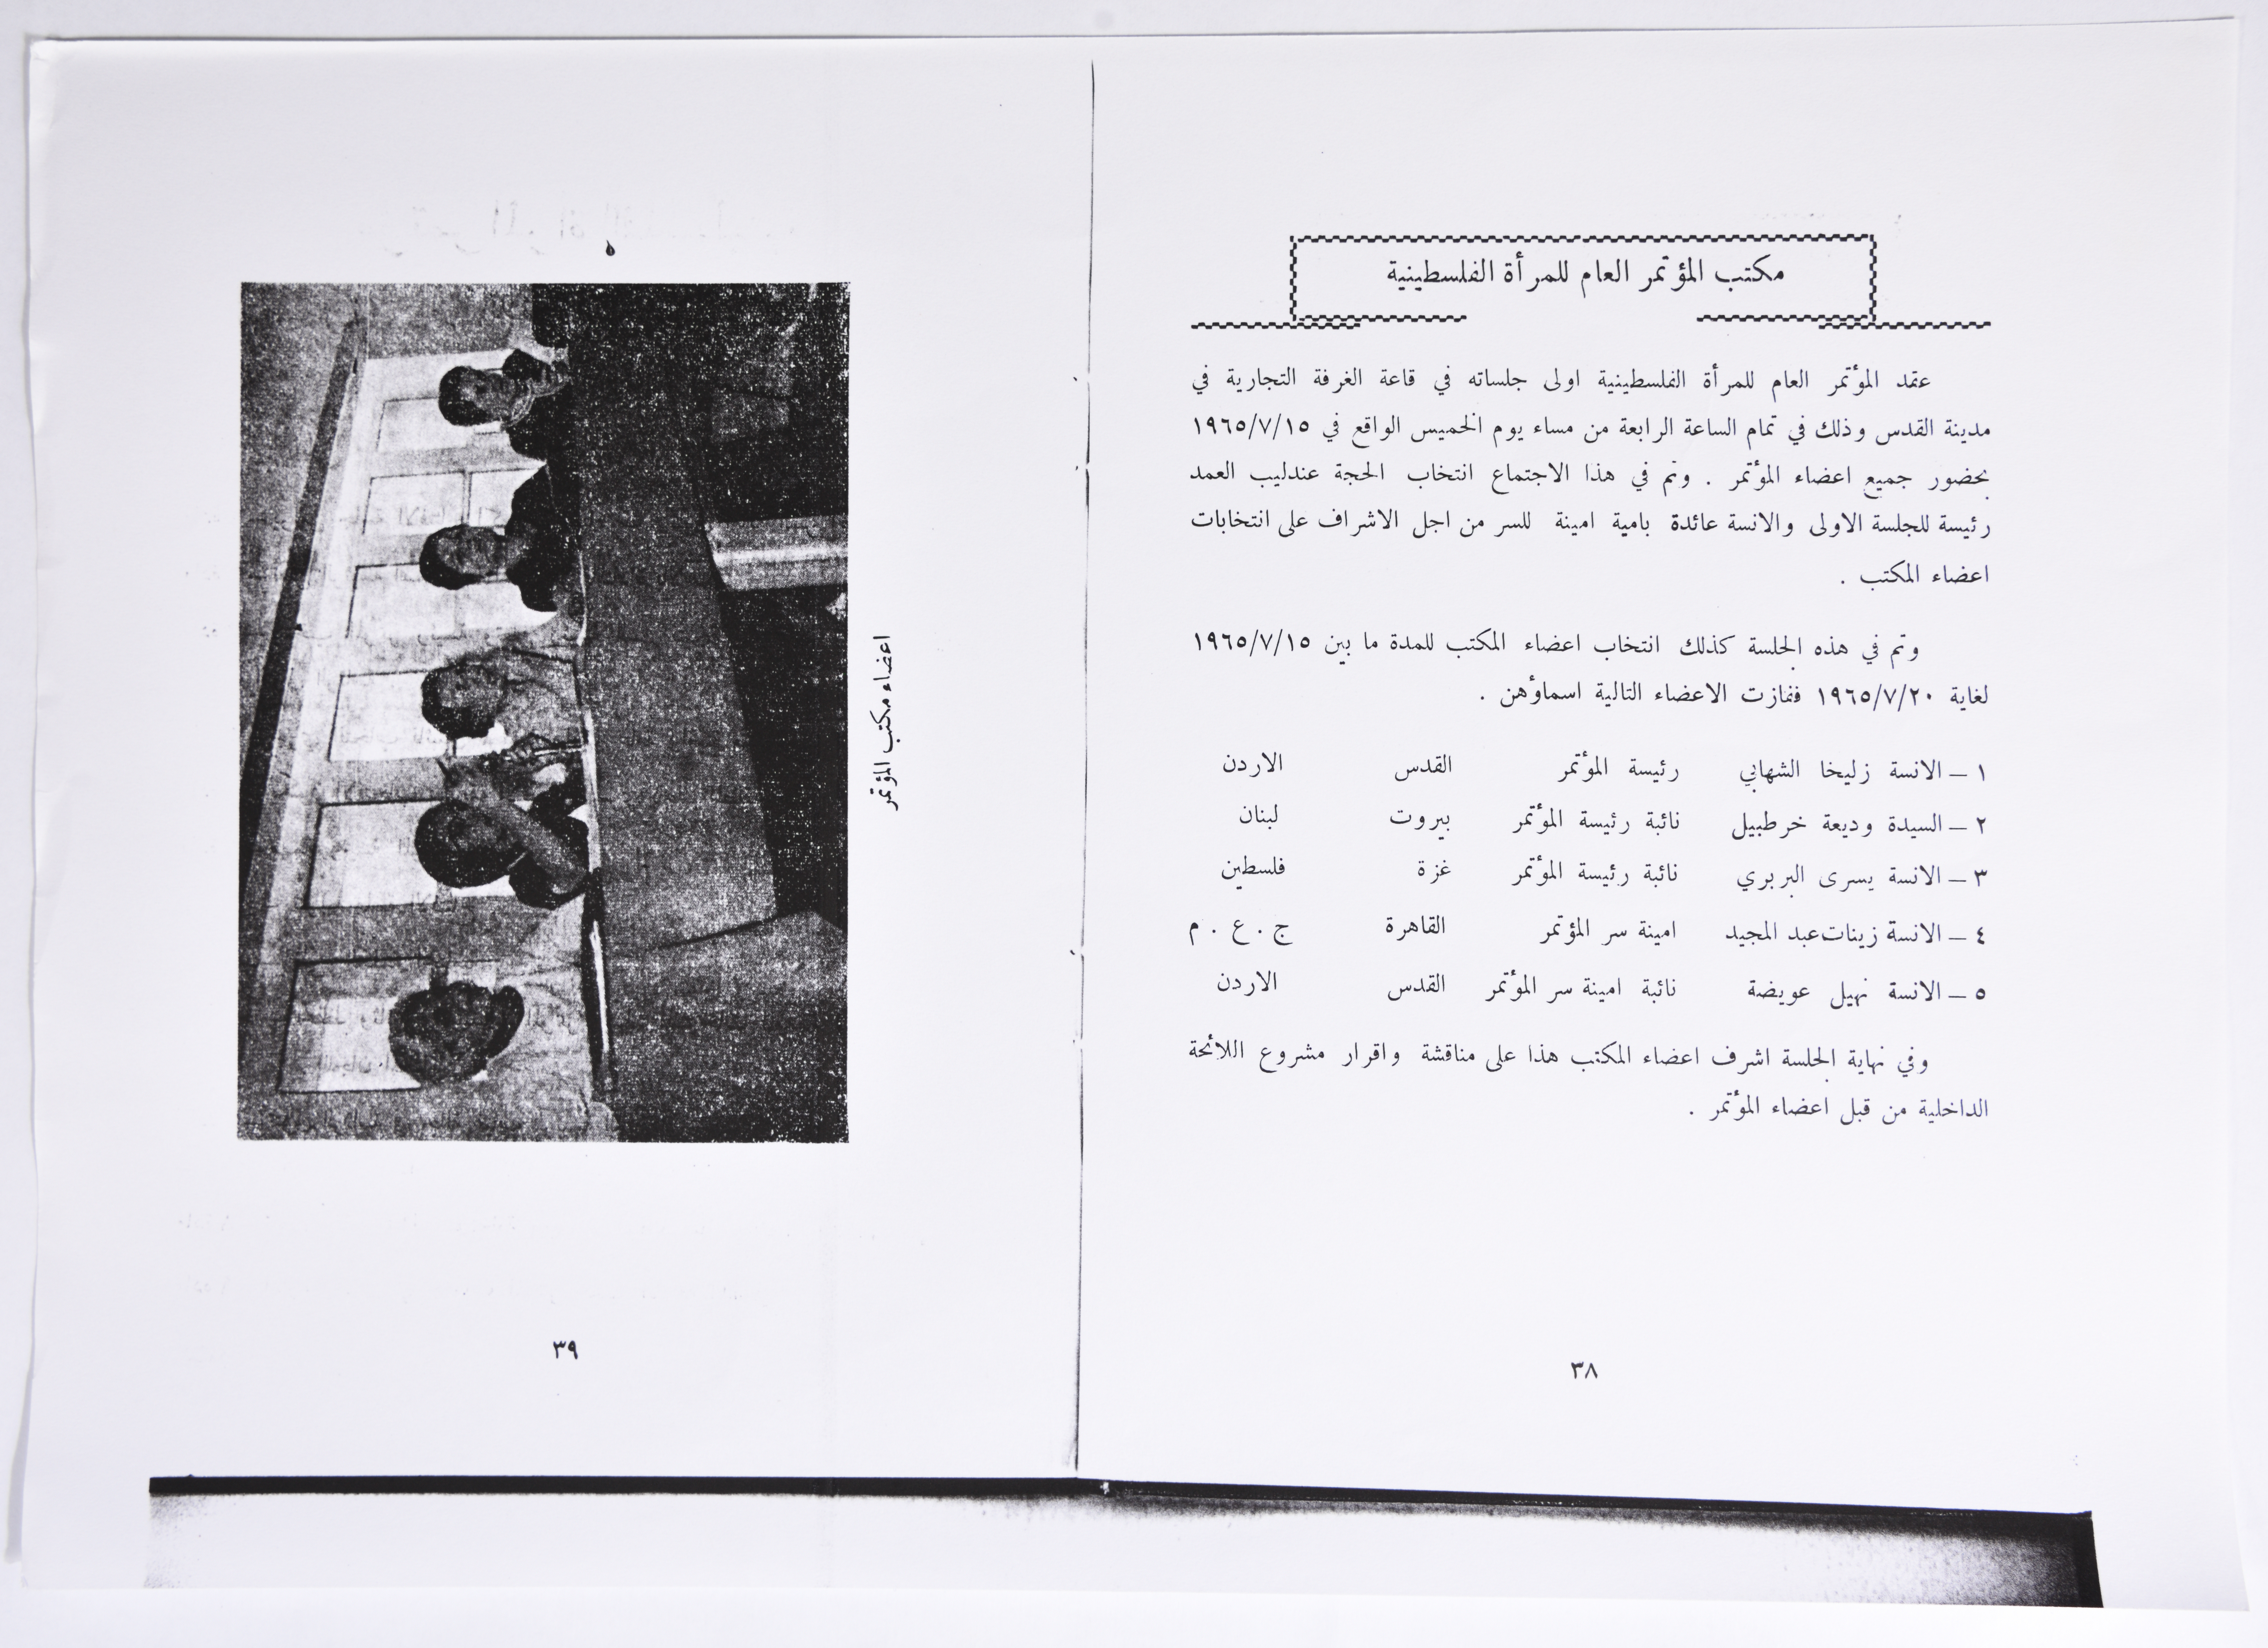 مكتب المؤتمر العام للمرأة الفلسطينية
عقد المؤتمر العام للمرأة الفلسطينية اولى جلساته في قاعة الغرفة التجارية في
مدينة القدس وذلك في تمام الساعة الرابعة من مساء يوم الخميس الواقع في ١٩٦٥/٧/١٥
بحضور جميع اعضاء المؤتمر . وتم في هذا الاجتماع انتخاب الحجة عندليب العمد
رئيسة للجلسة الاولى والانسة عائدة بامية امينة للسر من اجل الاشراف على انتخابات
اعضاء المكتب .
وتم في هذه الجلسة كذلك انتخاب اعضاء المكتب للمدة ما بين ١٩٦٥/٧/١٥
لغاية ١٩٦٥/٧/٢٠ ففازت الاعضاء التالية اسماؤهن .
١ – الانسة زليخا الشهابي رئيسة المؤتمر القدس الاردن
٢ – السيدة وديعة خرطبيل نائبة رئيسة المؤتمر بيروت لبنان
٣ – الانسة يسرى البربري نائبة رئيسة المؤتمر غزة فلسطين
٤ – الانسة زينات عبد المجيد امينة سر المؤتمر القاهرة ج . ع . م
٥ – الانسة نهيل عويضة نائبة امينة سر المؤتمر القدس الاردن
وفي نهاية الجلسة اشرف اعضاء المكتب هذا على مناقشة واقرار مشروع اللائحة
الداخلية من قبل اعضاء المؤتمر .
٣٨
اعضاء مكتب المؤتمر
٣٩